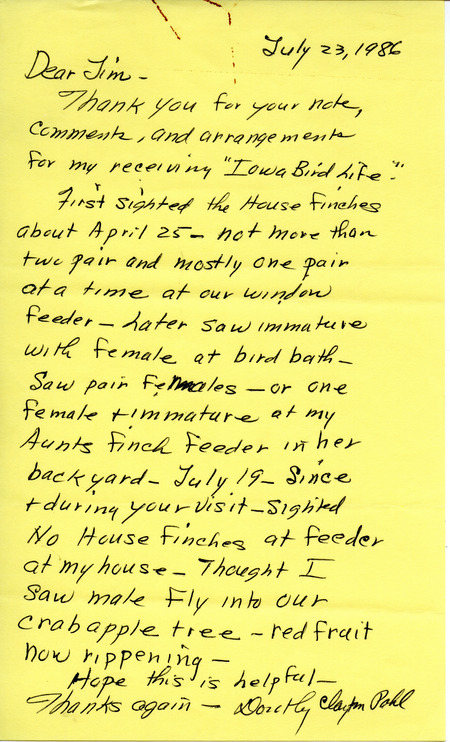 July 23, 1986
Dear Jim -
Thank you for your note,
comments, and arrangements
for my receiving "Iowa Bird Life".
First sighted the House Finches
about April 25 - not more than
two pair and mostly one pair
at a time at our window
feeder - Later saw immature
with female at bird bath -
Saw pair females - or one
female + immature at my
Aunts finch feeder in her
backyard - July 19 - Since
+ during your visit - sighted
No House Finches at feeder
at my house - Thought I
saw male fly into our
crabapple tree - red fruit
now rippening -
Hope this is helpful -
Thanks again - Dorothy Clayton Pohl